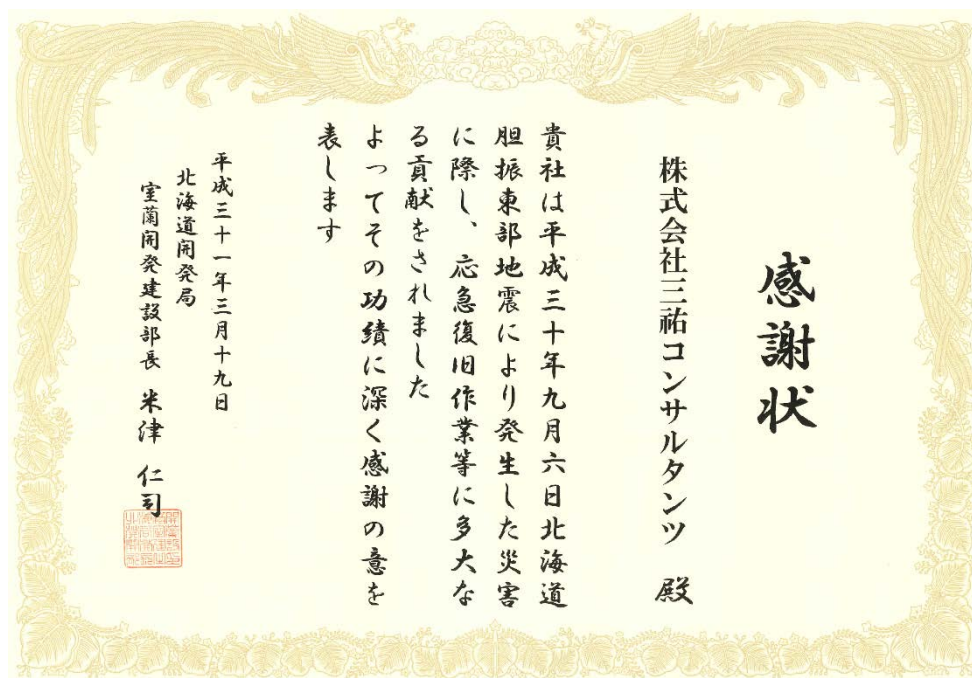 感謝状
株式会社三祐コンサルタンツ 殿
貴社は平成三十年九月六日北海道
胆振東部地震により発生した災害
に際し、応急復旧作業等に多大な
る貢献をされました
よってその功績に深く感謝の意を
表します
平成三十一年三月十九日
北海道開発局
室蘭開発建設部長 米津 仁司